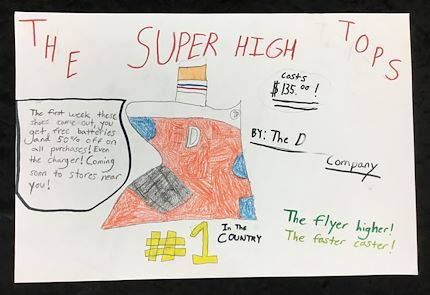 THE SUPER HIGH TOPS
Costs
$135.00!
The first week these
shoes came out, you
get free batteries
and 50% off on
all purchases! Even
the charger! Coming
soon to stores near
you!
D
BY: The D
Company
#1 In The
COUNTRY
The flyer higher!
The faster caster!